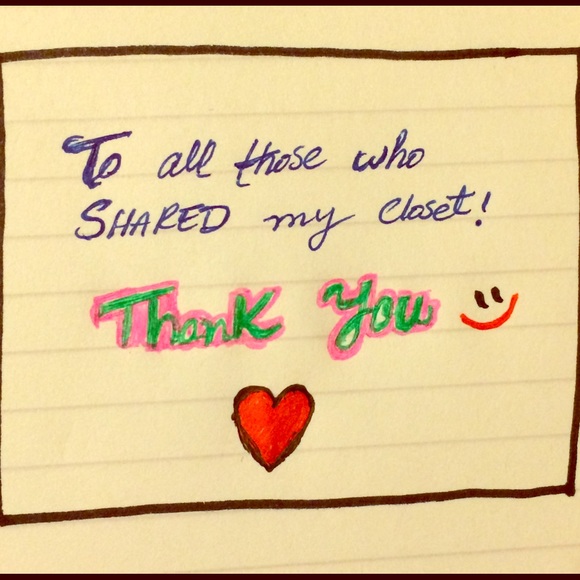 To all those who
SHARED my closet!
Thank You